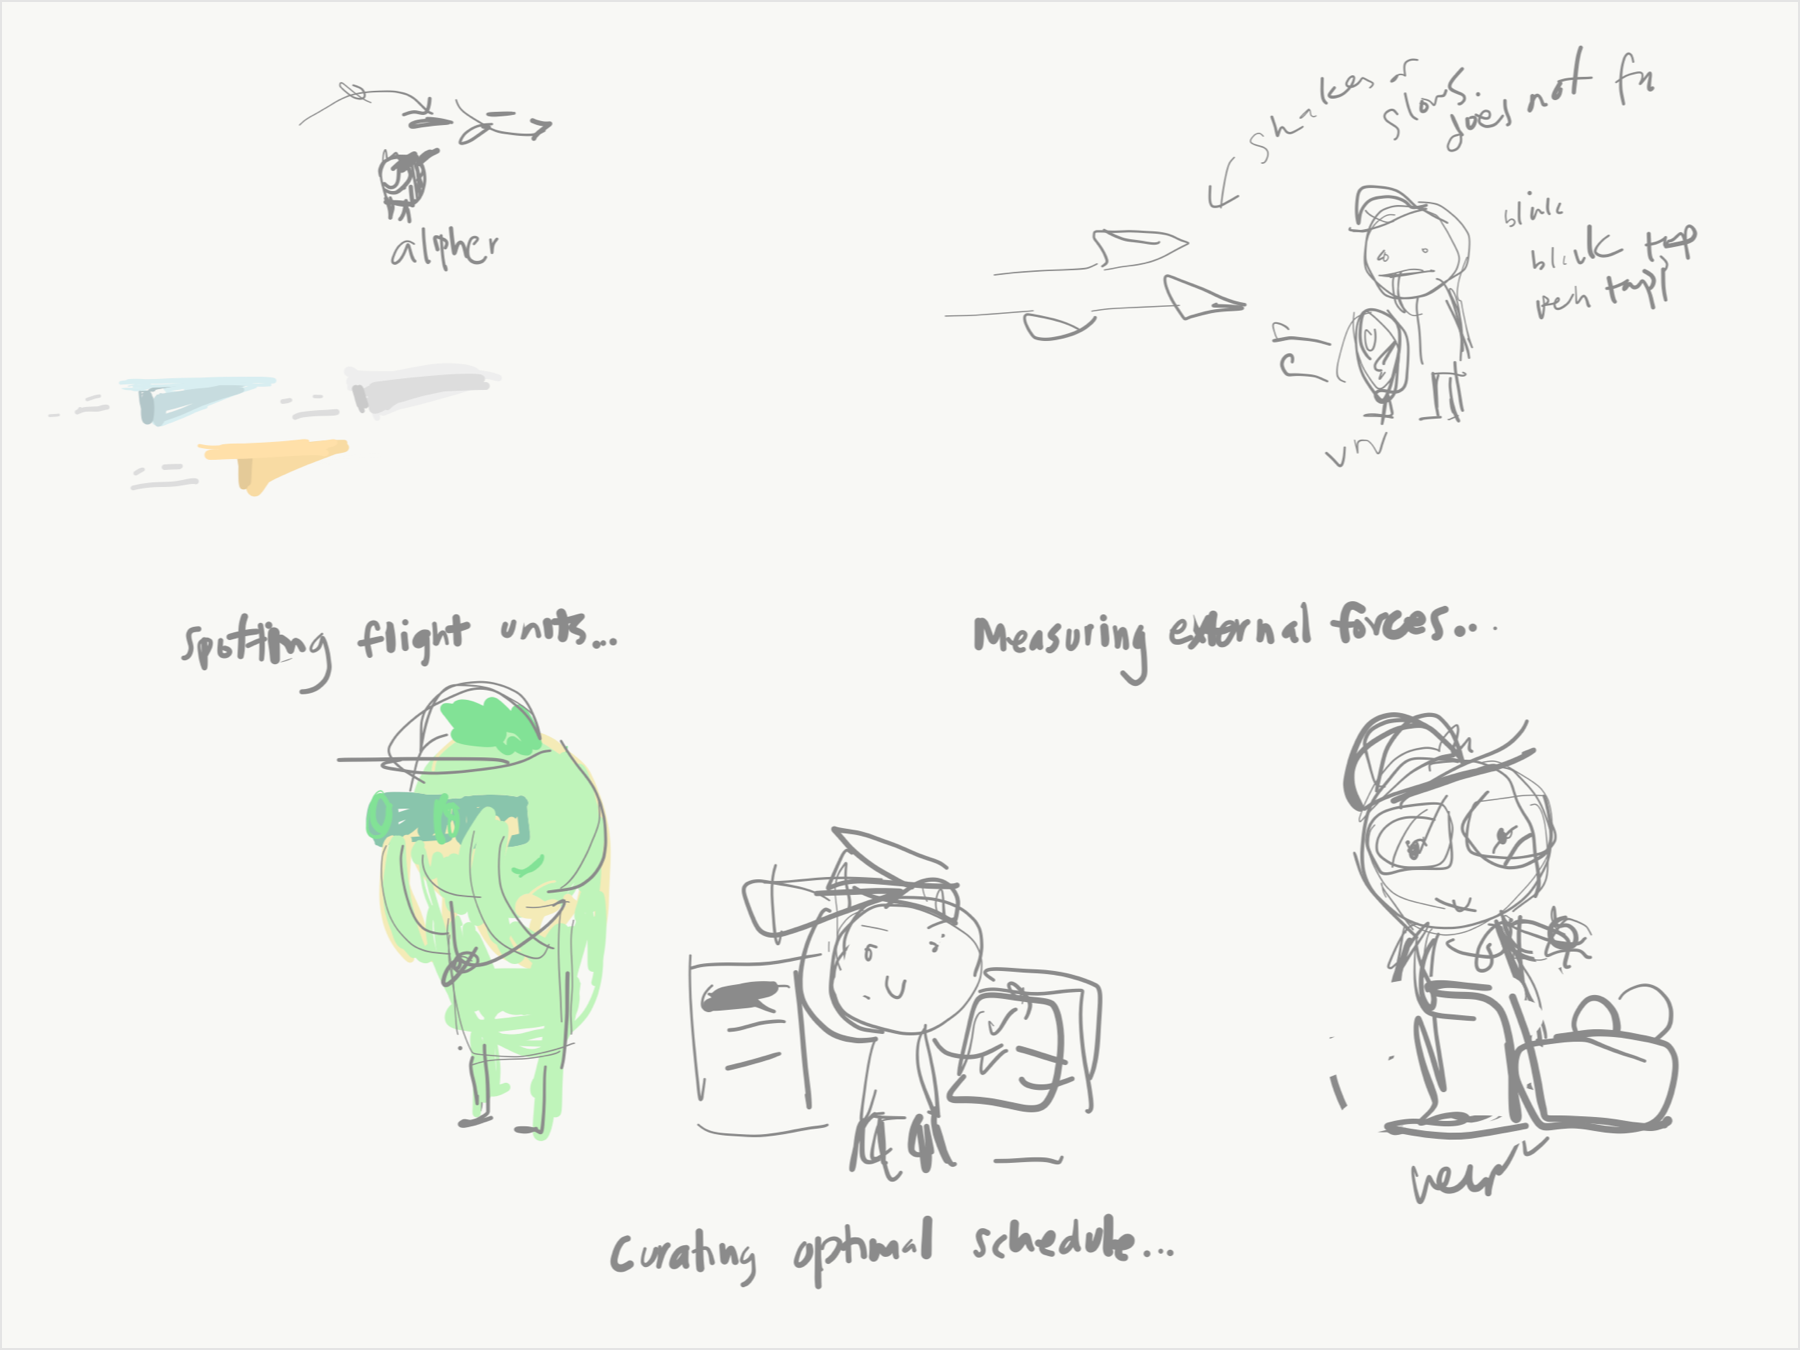 shakes or
slows.
does not fn
alpher
blink
blink tap
tap
Spotting flight units...
Measuring external forces...
Curating optimal schedule...